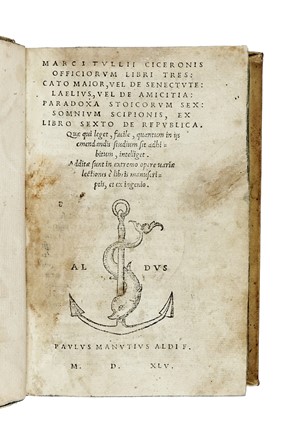 MARCI TULLII CICERONIS
OFFICIORVM LIBRI TRES:
CATO MAIOR, VEL DE SENECTVTE:
LAELIVS, VEL DE AMICITIA:
PARADOXA STOICORVM SEX:
SOMNIVM SCIPIONIS, EX
LIBRO SEXTO DE REPVBLICA.
Quæ qui leget, facile, quantum in ijs
emendandis studium sit adhi-
bitum, intelliget.
Additæ sunt in extremo opere uariæ
lectiones è libris manuscri-
ptis, et ex ingenio.
AL DVS
PAVLVS MANVTIVS ALDI F.
M. D. XLV.